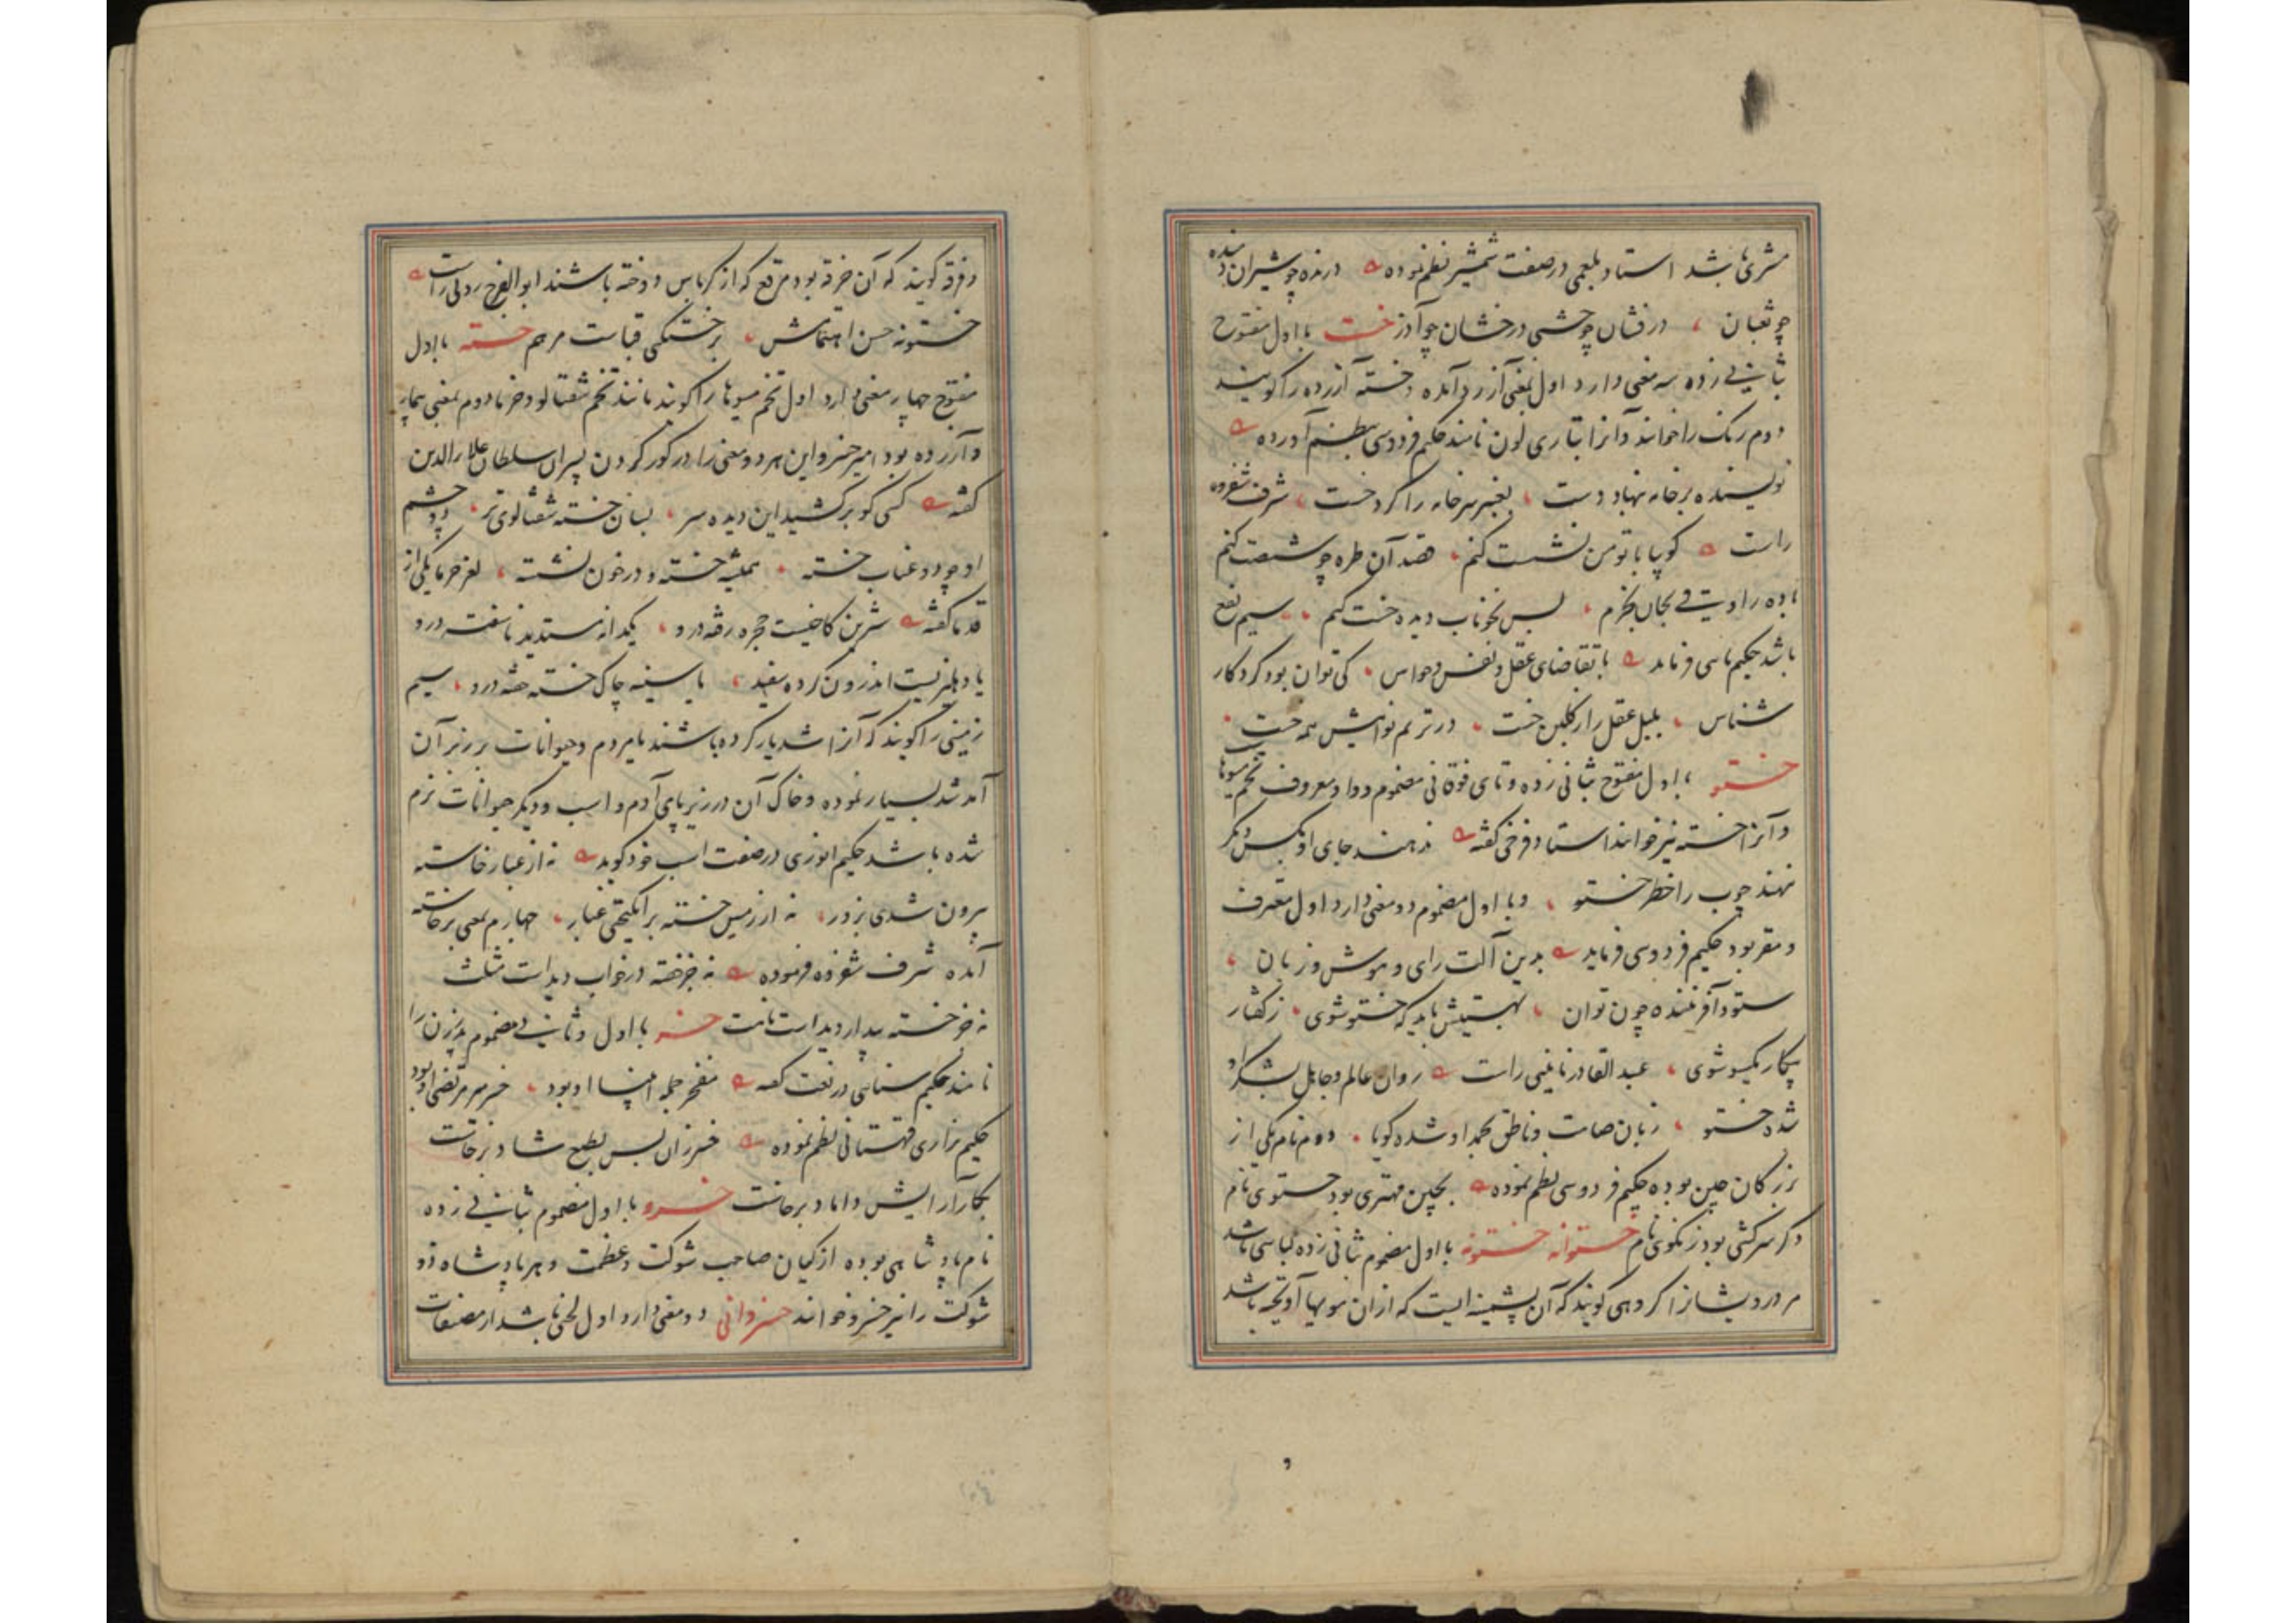 مشری باشد استاد بلعمی در صفت شمشیر نظم نموده درنده چو شیران دمنده
چو ثعبان درفشان چو شمس درخشان چو آذر خست با اول مفتوح
بثانی زده سه معنی دارد اول بمعنی آزرد آمده و خسته آزرده را گویند
دوم رنگ را خوانند و آنرا بتازی لون نامند حکیم فردوسی بنظم آورده
نویسنده بر خامه بنهاد دست بعنبر سر خامه را کرد خست شرف شفروه
راست کو بیا با تو من نشست کنم قصد آن طره چو شست کنم
باده را دستی بجان بخرم پس بخوناب دیده خست کنم سیم نفع
باشد حکیم سنائی فرماید با تقاضای عقل و نفس و حواس کی توان بود کردکار
شناس بلبل عقل را ز گلبن خست در ترنم نوایش همه خست
خستو با اول مفتوح بثانی زده و تای فوقانی مضموم و واو معروف تخم میوها
و آنرا خسته نیز خوانند استاد فرخی گفته نه نهند جای او بکس دیگر
نهند چوب را خطر خستو و با اول مضموم دو معنی دارد اول معترف
و مقر بود حکیم فردوسی فرماید بدین آلت رای و هوش و زبان
ستود آفریننده چون توان بهستیش باید که خستو شوی ز گفتار
بیکار یکسو شوی عبد القادر نائینی راست روان عالم و جاهل بشکر او
شده خستو زبان صامت و ناطق بحمد او شده گویا دوم نام یکی از
بزرگان چین بوده حکیم فردوسی نظم نموده بچین مهتری بود خستوی نام
دگر سرکشی بود زنکوی نام خستوانه خستونه با اول مضموم بثانی زده لباسی باشد
مر درویشانرا گروهی گویند که آن پشینه ایست که از آن مویها آویخته باشد
و فرقه گویند که آن خرقه بود مرقع که از کرباس دوخته باشند ابو الفرج رونی راست
خستونه حسن اهتمامش بر خستگی قباست مرهم خسته با اول
مفتوح چهار معنی دارد اول تخم میوها را گویند مانند تخم شفتالو و خرما دوم بمعنی بیمار
و آزرده بود امیر خسرو این هر دو معنی را در کور کردن پسران سلطان علاء الدین
گفته کسی کو برکشید این دیده سر بسان خسته شفتالوی تر دو چشم
او چو دو عناب خسته همیشه خسته و در خون نشسته لغز خرما یکی از
قدما گفته شرین کاخیست حجره رفته درو یکدانه سندید ناسفته درو
یا دهلیزیست اندرون کرده سفید یا سینه چاک خسته خفته درو سیم
زمینی را گویند که آنرا شدیار کرده باشند یا مردم و حیوانات بر زبر آن
آمد شد بسیار نموده و خاک آن در زیر پای آدم و اسب و دیگر حیوانات نرم
شده باشد حکیم انوری در صفت اسب خود گوید نه از غبار خاسته
بیرون شدی بزور نه از زمین خسته برانگیختی غبار چهارم بمعنی برخاسته
آمده شرف شفروه فرموده نه جز خفته در خواب دیدست مثلت
نه جز خسته بیدار دیدست ثانیت خسر با اول و ثانی مضموم پدر زن را
نامند حکیم سنایی در نعت گفته مفخر جمله انبیا او بود خسر میر مرتضی او بود
حکیم نزاری قهستانی نظم نموده خسر زان پس بطبع شاد برخاست
بکار آرایش داماد برخاست خسرو با اول مضموم بثانی زده
نام پادشاهی بوده از کیان صاحب شوکت و عظمت و هر پادشاه ذو
شوکت را نیز خسرو خوانند خسروانی دو معنی دارد اول لحنی باشد از مصنفات